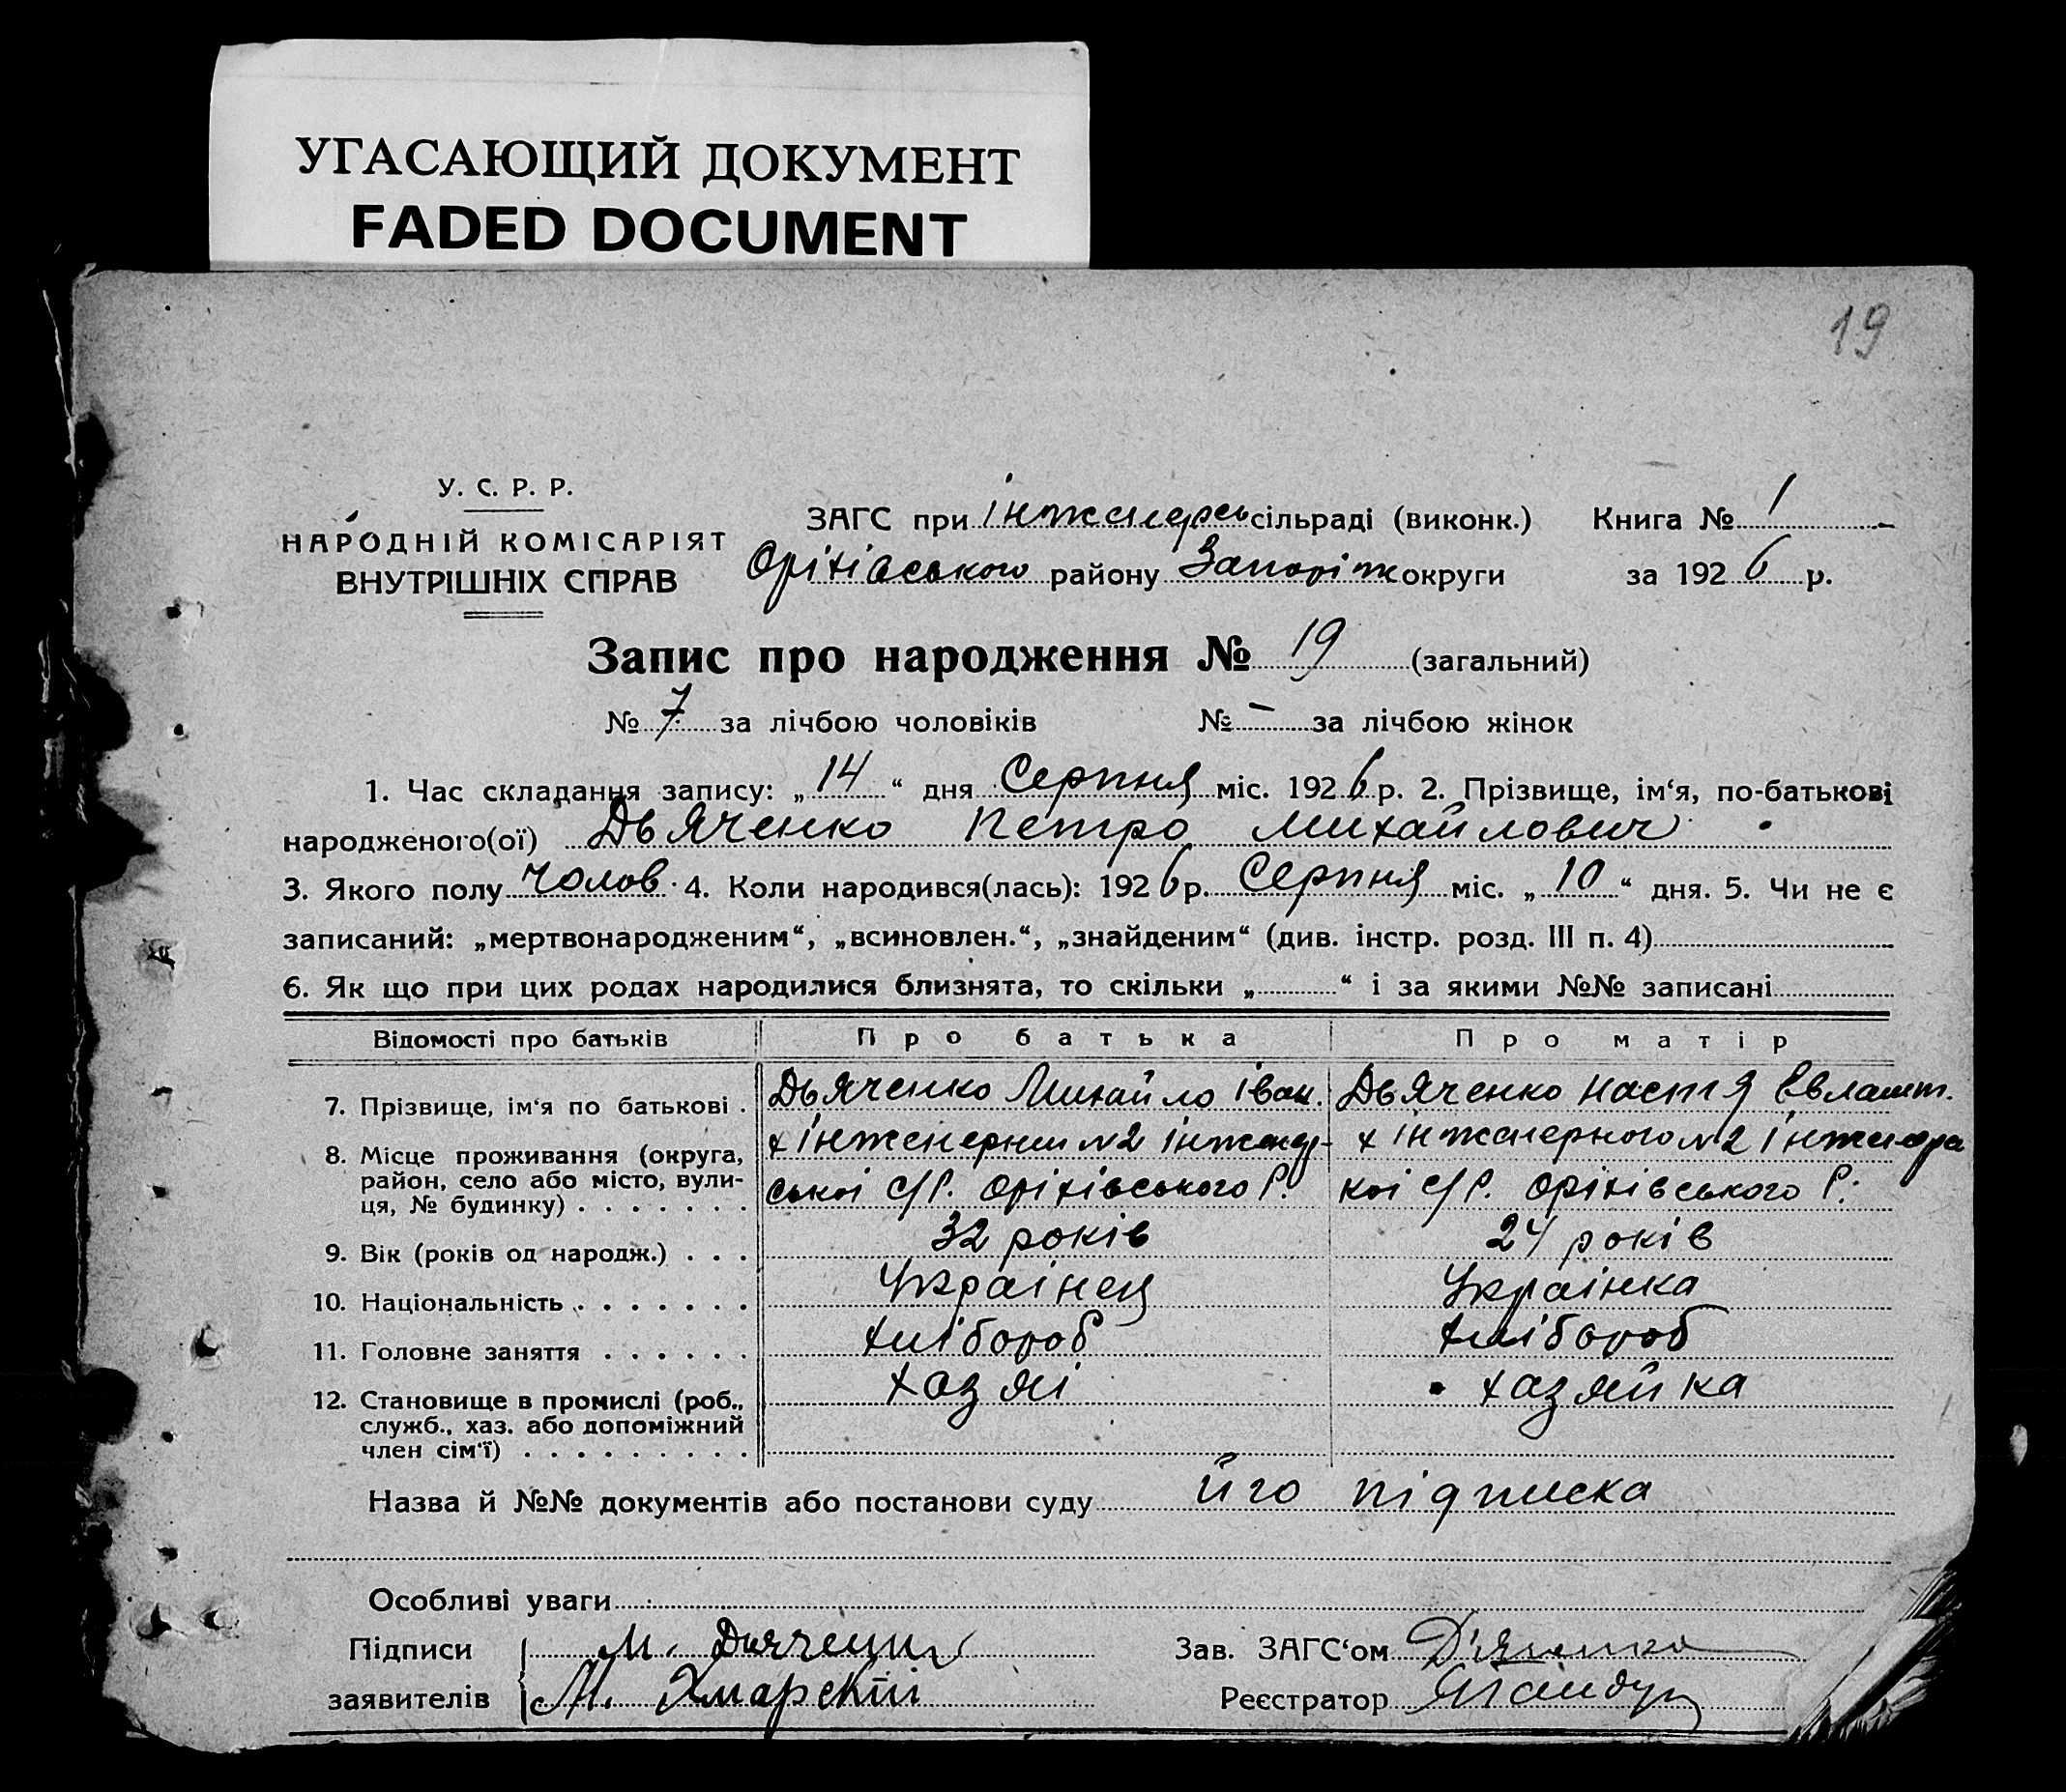 УГАСАЮЩИЙ ДОКУМЕНТ
FADED DOCUMENT
19
У. С. Р. Р.
НАРОДНІЙ КОМІСАРІЯТ
ВНУТРІШНІХ СПРАВ
ЗАГС при інженерсь сільраді (виконк.) Книга № 1
Оріхівського району Запоріж округи за 1926 р.
Запис про народження № 19 (загальний)
№ 7 за лічбою чоловіків № – за лічбою жінок
1. Час складання запису: „14“ дня Серпня міс. 1926 р. 2. Прізвище, ім‘я, по-батькові
народженого(ої) Дьяченко Петро Михайлович
3. Якого полу чолов. 4. Коли народився(лась): 1926 р. Серпня міс. „10“ дня. 5. Чи не є
записаний: „мертвонародженим“, „всиновлен.“, „знайденим“ (див. інстр. розд. III п. 4)
6. Як що при цих родах народилися близнята, то скільки „ “ і за якими №№ записані
Відомості про батьків Про батька Про матір
7. Прізвище, ім‘я по батькові . Дьяченко Михайло Іван. Дьяченко Настя Евлашт.
8. Місце проживання (округа, х Інженерний №2 Інженер- х Інженерного №2 Інженерсь
район, село або місто, вули- ської С/Р. Оріхівського Р. кої С/Р. Оріхівського Р.
ця, № будинку) . . . . . . .
9. Вік (років од народж.) . . . 32 років 24 років
10. Національність . . . . . . . Украінец Украінка
11. Головне заняття . . . . . . хлібороб хлібороб
12. Становище в промислі (роб., хазяі хазяйка
служб., хаз. або допоміжний
член сім‘ї) . . . . . . . . .
Назва й №№ документів або постанови суду його підписка
Особливі уваги
Підписи М. Дьяченко Зав. ЗАГС‘ом Д'яченко
заявителів М. Хмарський Реєстратор